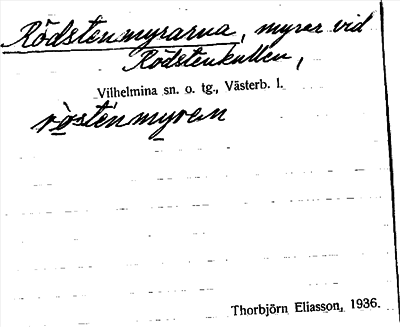 Rödstenmyrarna, myrar vid
Rödstenkullen,
Vilhelmina sn. o. tg., Västerb. l.
rò̀sténmyren
Thorbjörn Eliasson, 1936.